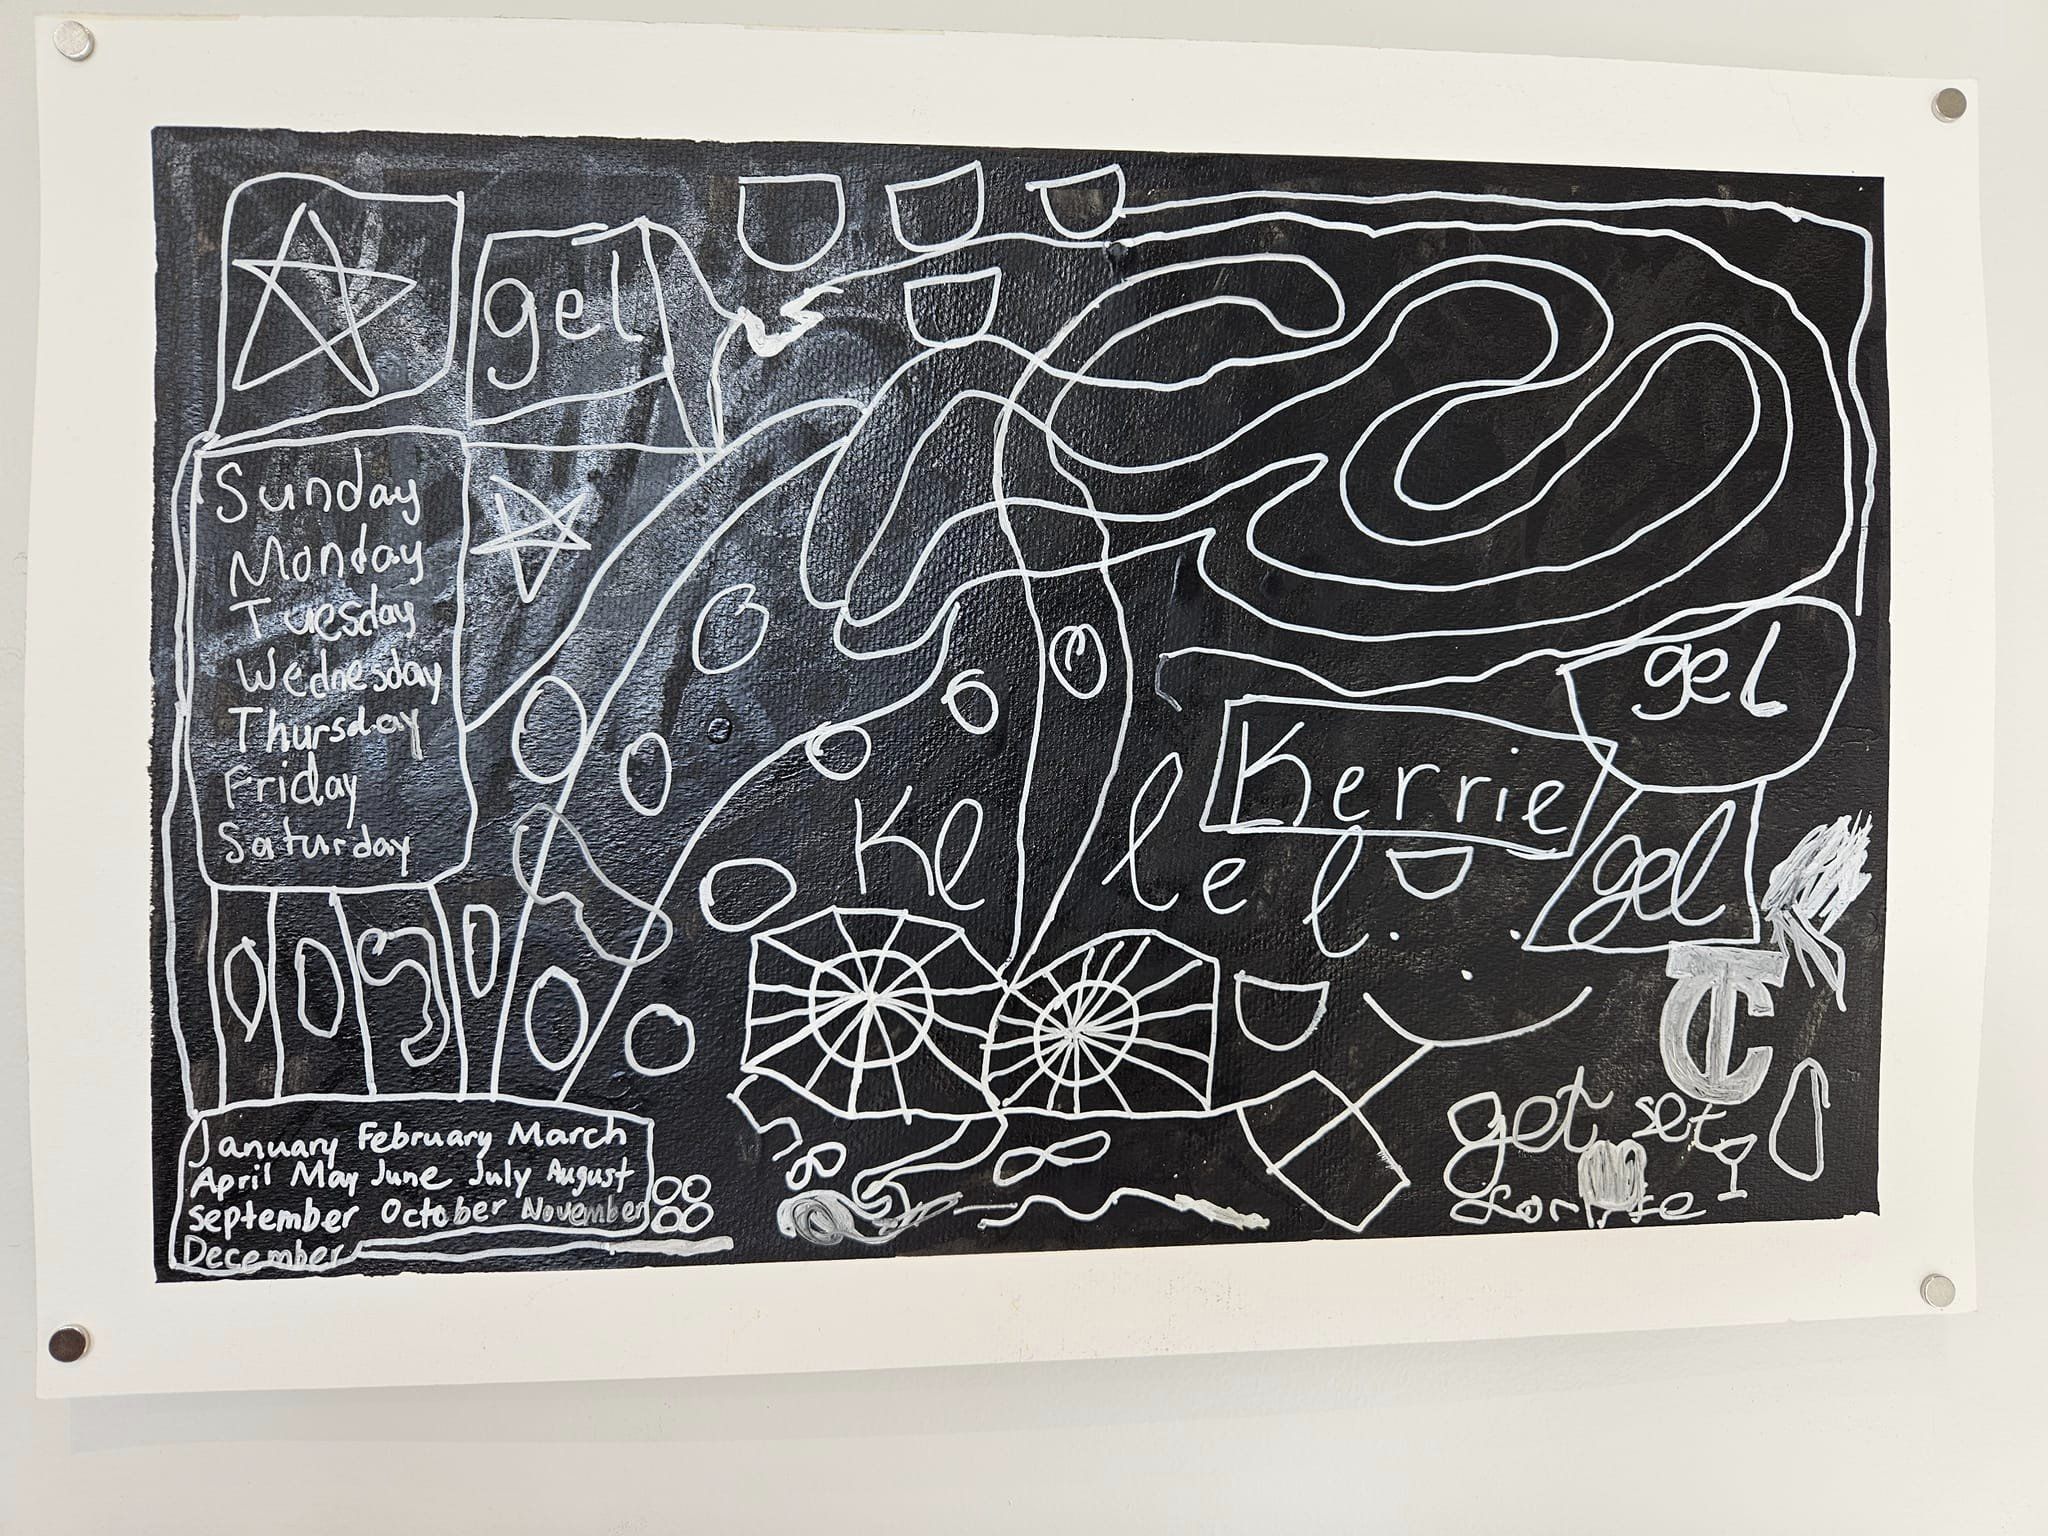 gel
Sunday
Monday
Tuesday
Wednesday
Thursday
Friday
Saturday
gel
Kerrie
gel
Kel
lel
get set
January February March
April May June July August
September October November
December